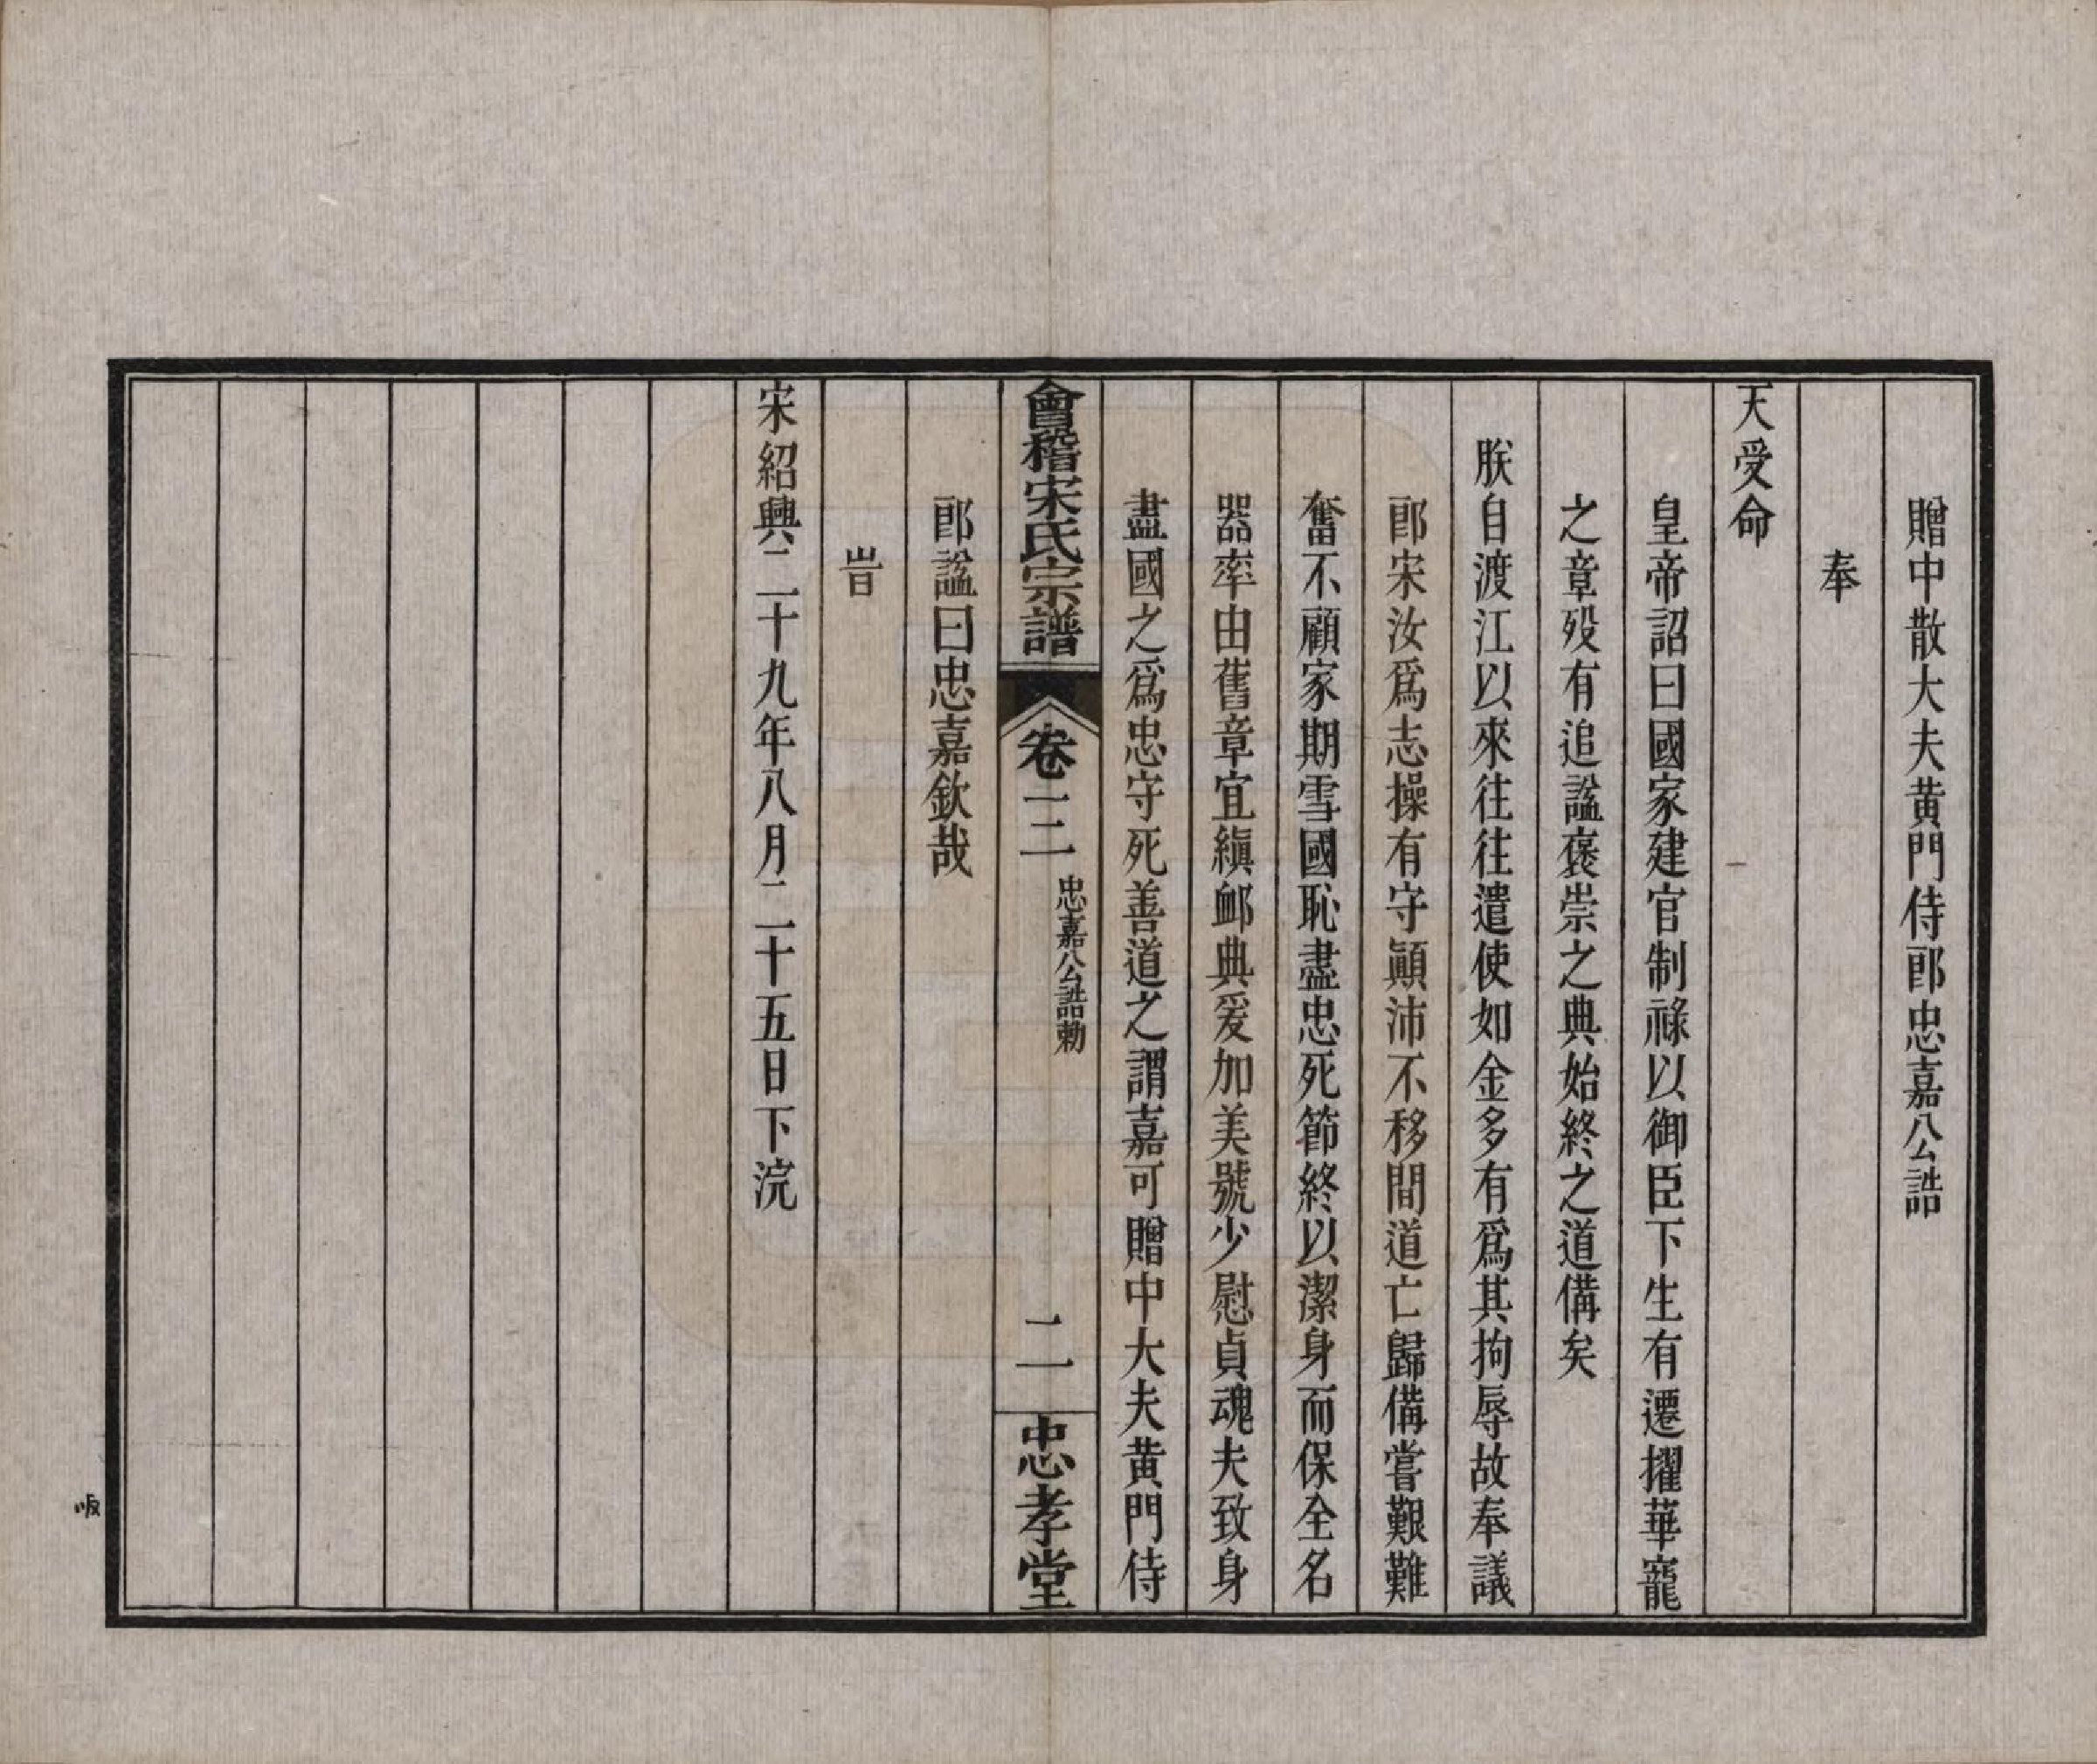 贈中散大夫黄門侍郎忠嘉公誥
奉
天受命
皇帝詔曰國家建官制祿以御臣下生有遷擢華寵
之章殁有追諡褒崇之典始終之道備矣
朕自渡江以來往往遣使如金多有爲其拘辱故奉議
郎宋汝爲志操有守顚沛不移間道亡歸備嘗艱難
奮不顧家期雪國恥盡忠死節終以潔身而保全名
器率由舊章宜縝衈典爰加美號少慰貞魂夫致身
盡國之爲忠守死善道之謂嘉可贈中大夫黄門侍
會稽宋氏宗譜
卷二
忠嘉公誥勅
二
忠孝堂
郎諡曰忠嘉欽哉
旹
宋紹興二十九年八月二十五日下浣